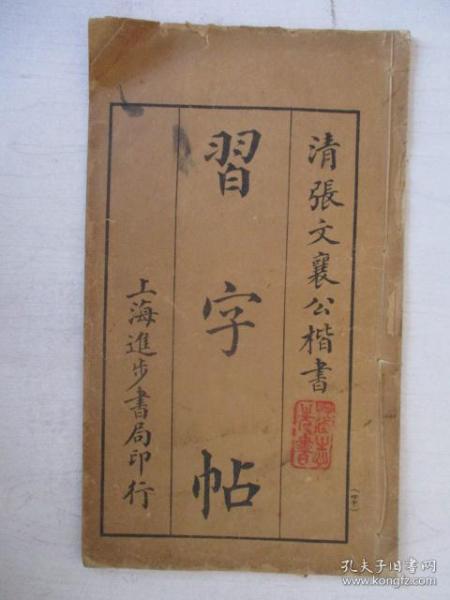 清張文襄公楷書
習字帖
上海進步書局印行
孔夫子旧书网
www.kongfz.com